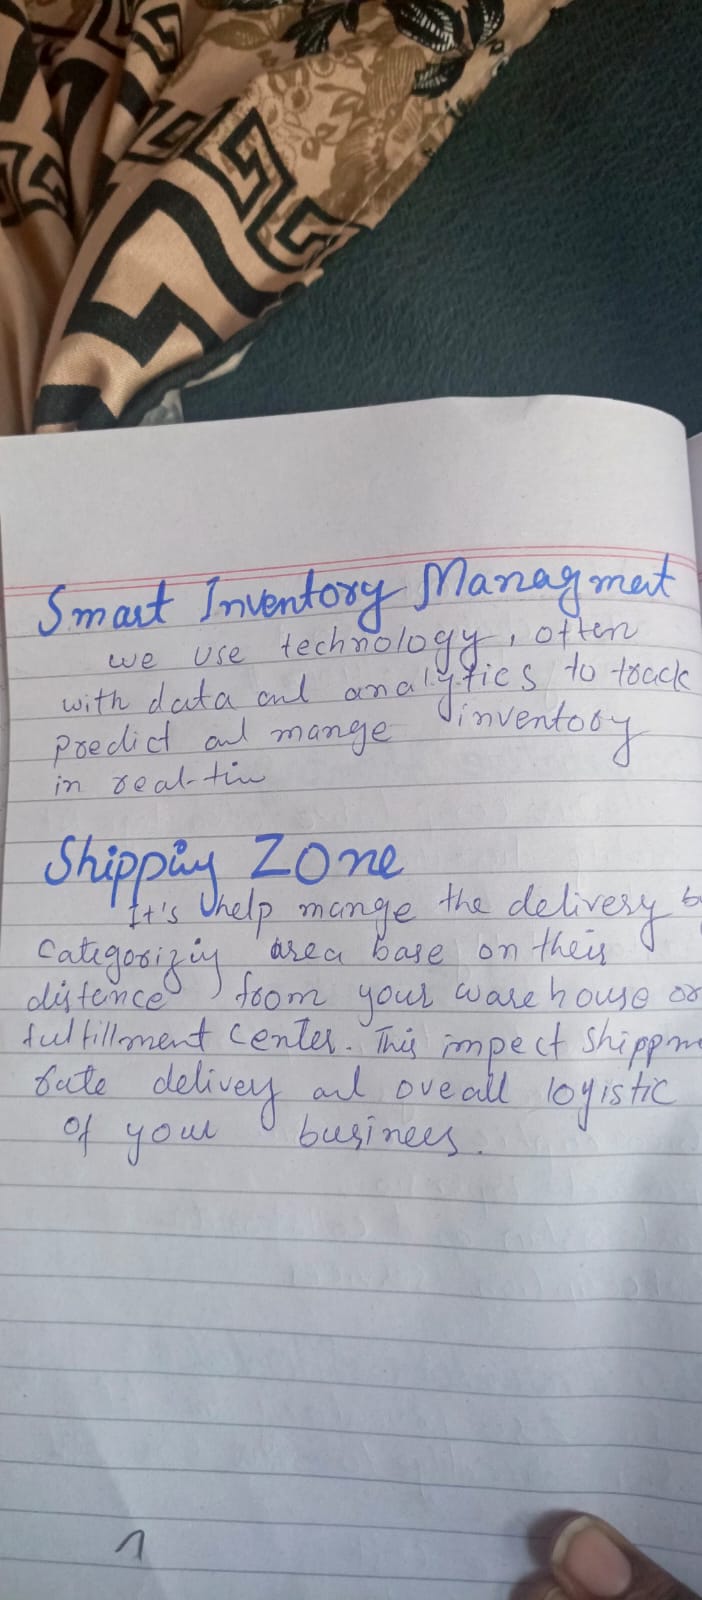 Smart Inventory Managment
we use technology, often
with data and analytics to track
predict and mange inventory
in real-tim
Shipping Zone
It's help mange the delivery b
Categorizing area base on their
distence from your warehouse or
fulfillment center. This impect Shippm
rate delivery and oveall logistic
of your businees.
1